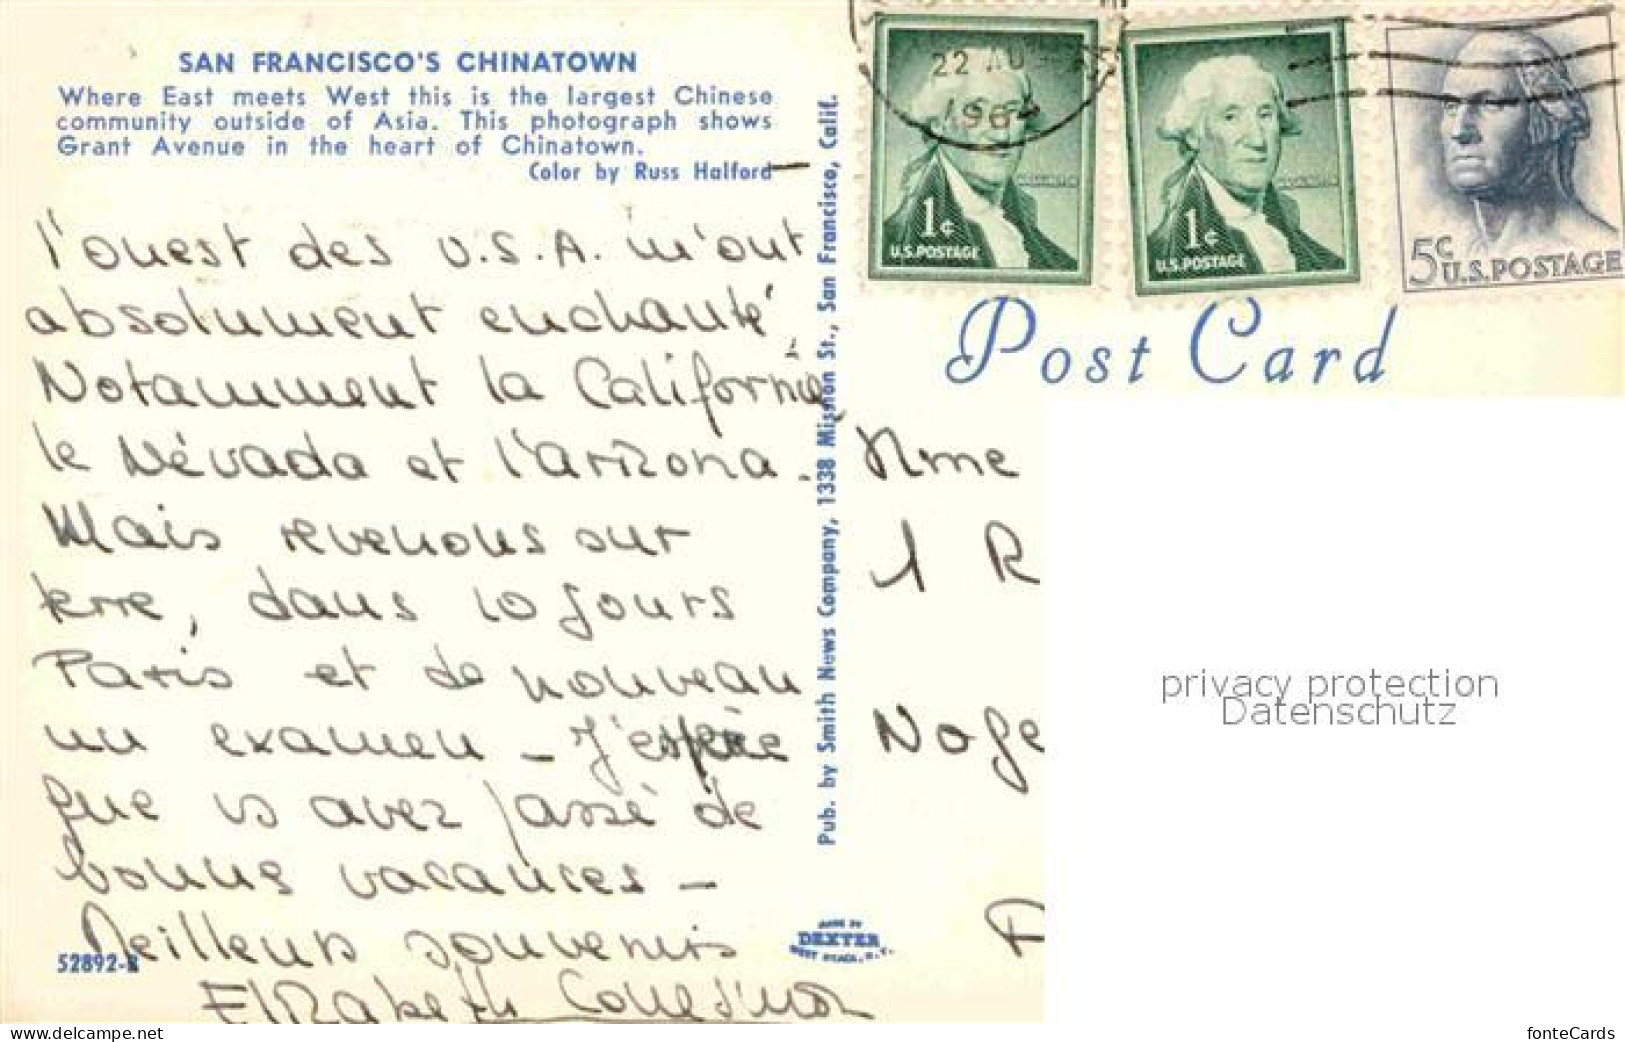 SAN FRANCISCO'S CHINATOWN
Where East meets West this is the largest Chinese
community outside of Asia. This photograph shows
Grant Avenue in the heart of Chinatown.
Color by Russ Halford
l'ouest des U.S.A. m'ont
absolument enchanté
Notamment la Californie
le Névada et l'arizona.
Mais revenons sur
terre, dans 10 jours
Paris et de nouveau
un examen – J'espère
que vs avez passé de
bonnes vacances –
Meilleurs souvenirs
Elizabeth
52892-B
Pub. by Smith News Company, 1338 Mission St., San Francisco, Calif.
MADE BY
DEXTER
WEST NYACK, N.Y.
22 AUG
1964
1¢
U.S. POSTAGE
1¢
U.S. POSTAGE
5¢
U.S. POSTAGE
Post Card
Mme
1 R
Noge
F
privacy protection
Datenschutz
www.delcampe.net
fonteCards